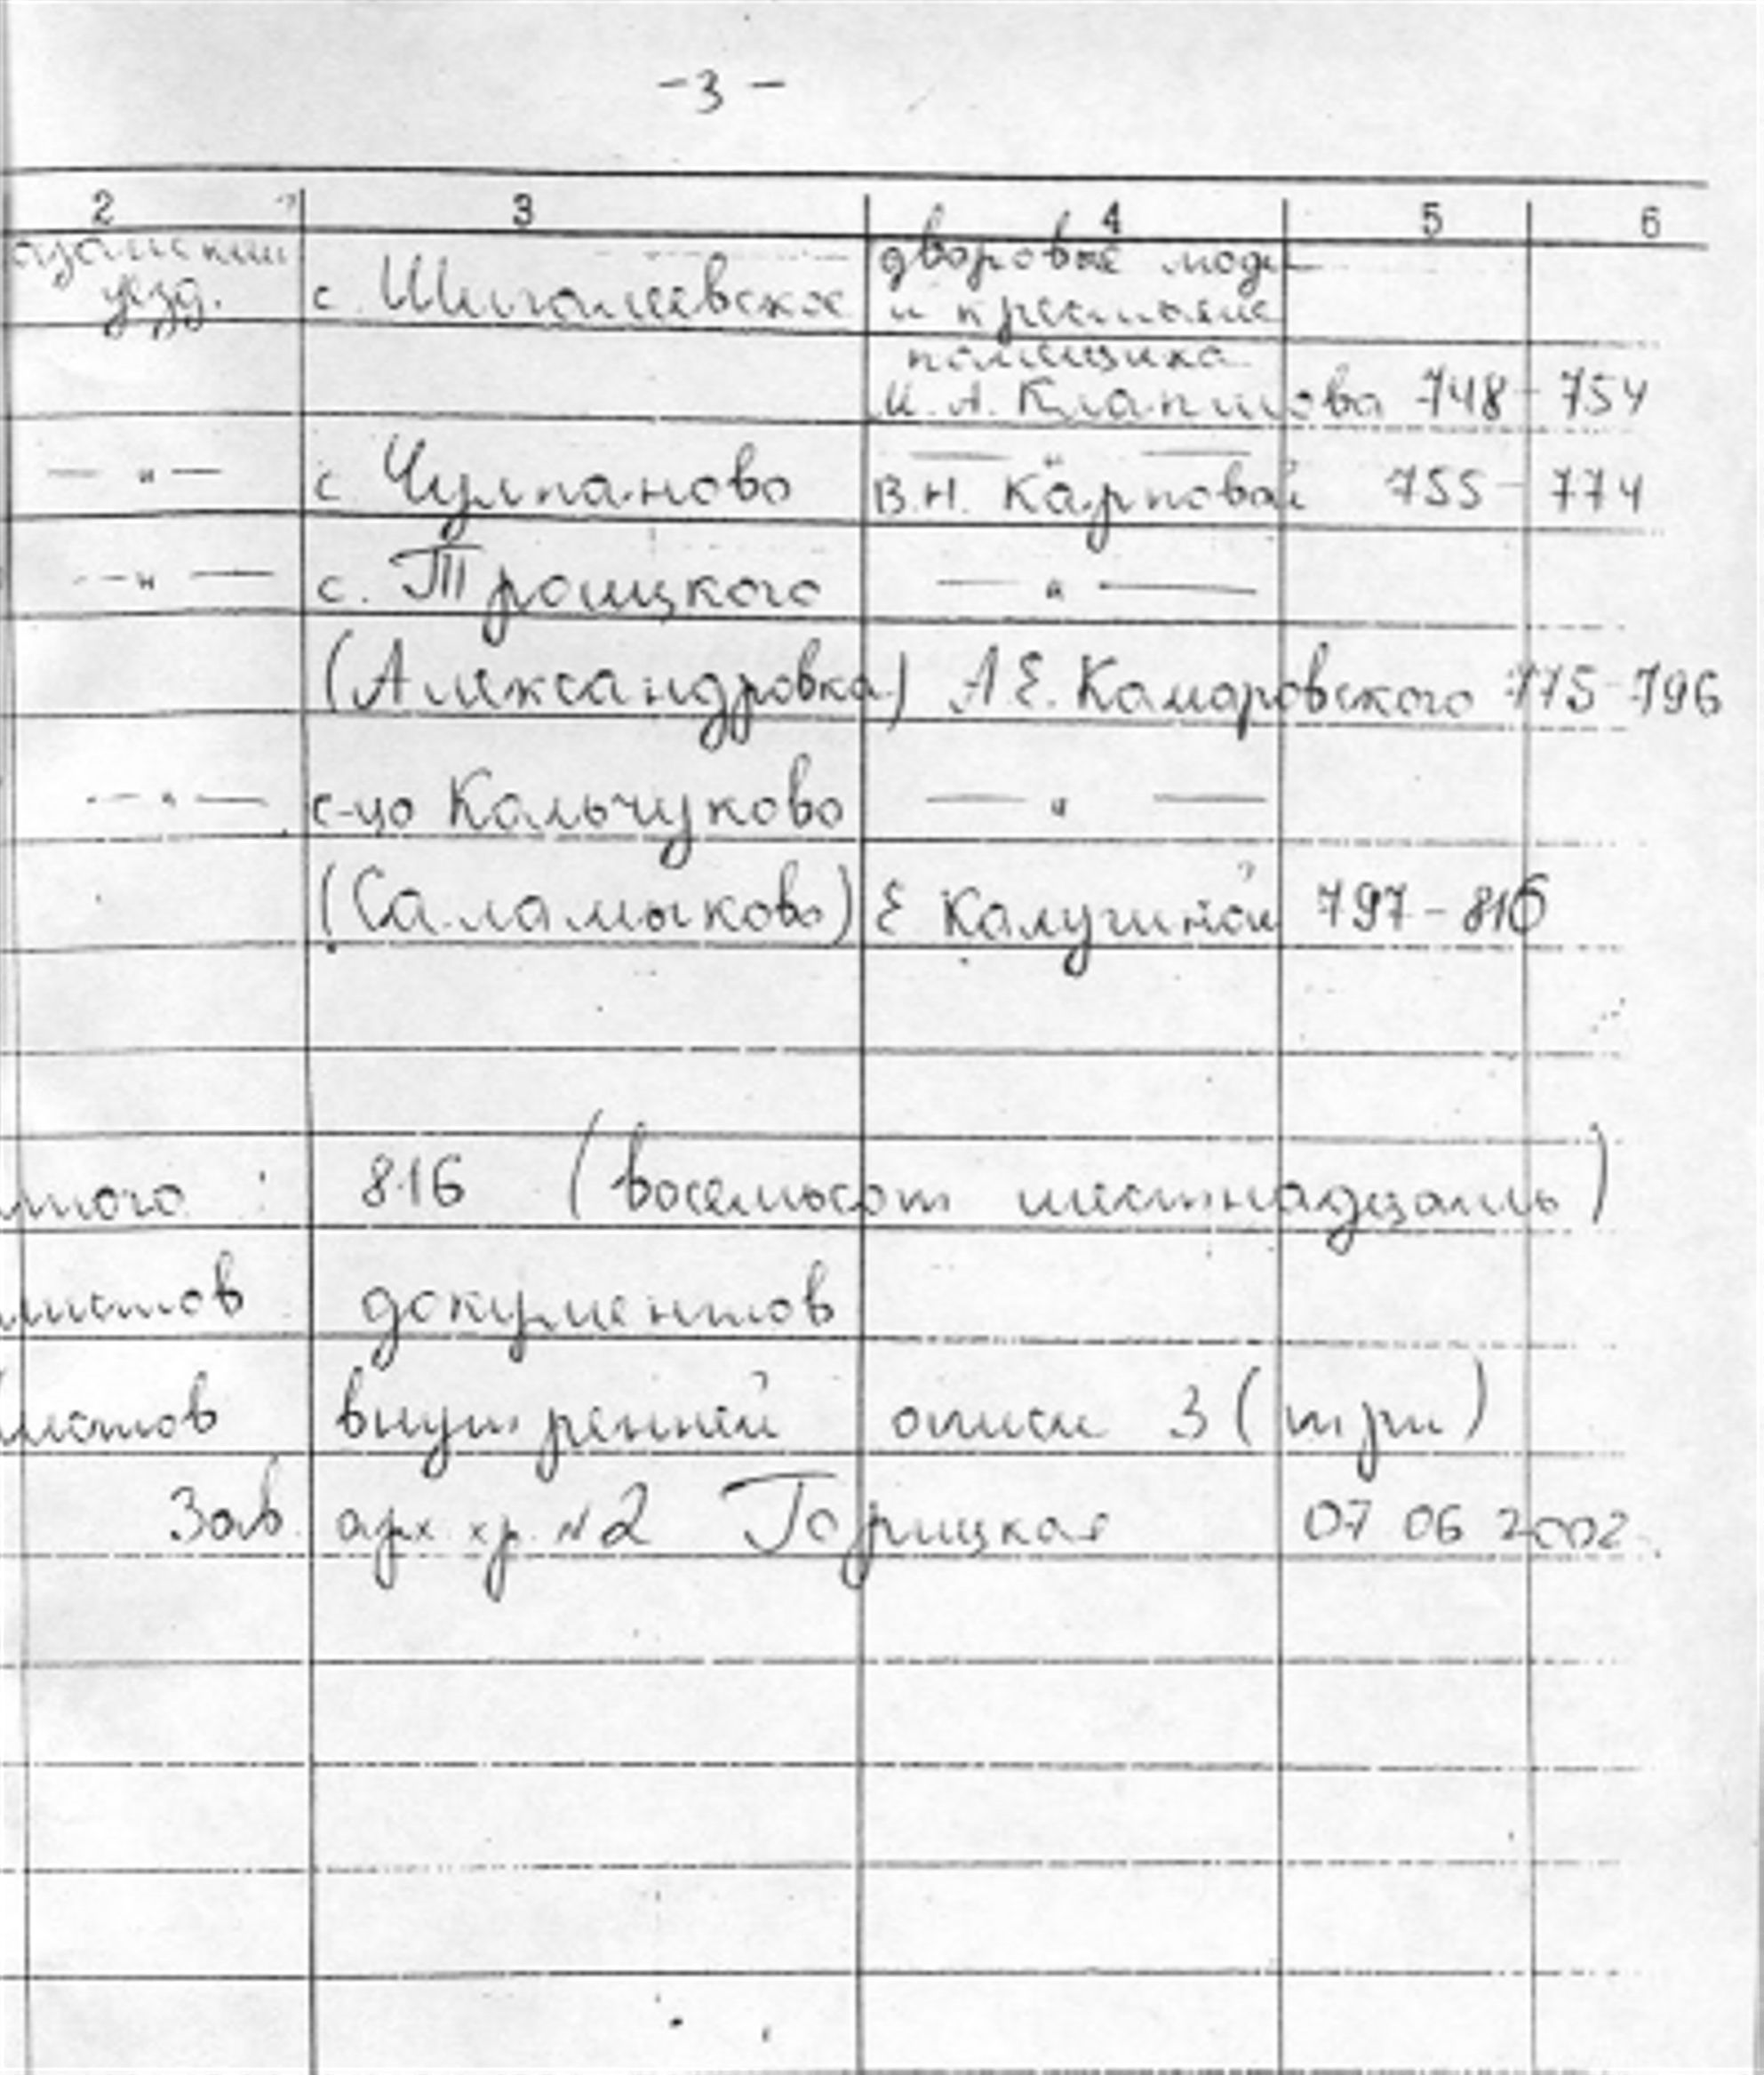 -3-
2 3 4 5 6
дворовые люди
уезд. с. Шигалеевское и крестьяне
помещика
748-754
-"- с Чулпаново -"-
В.Н. Карповой 755-774
-"- с. Троицкого -"-
(Александровка) А.Е. Комаровского 775-796
-"- с-цо Кольчуково -"-
(Саламыково) Е Калугиной 797-816
816 (восемьсот шестнадцать)
листов документов
листов внутренней описи 3 (три)
Зав. арх. хр. №2 Горицкая 07 06 2002.